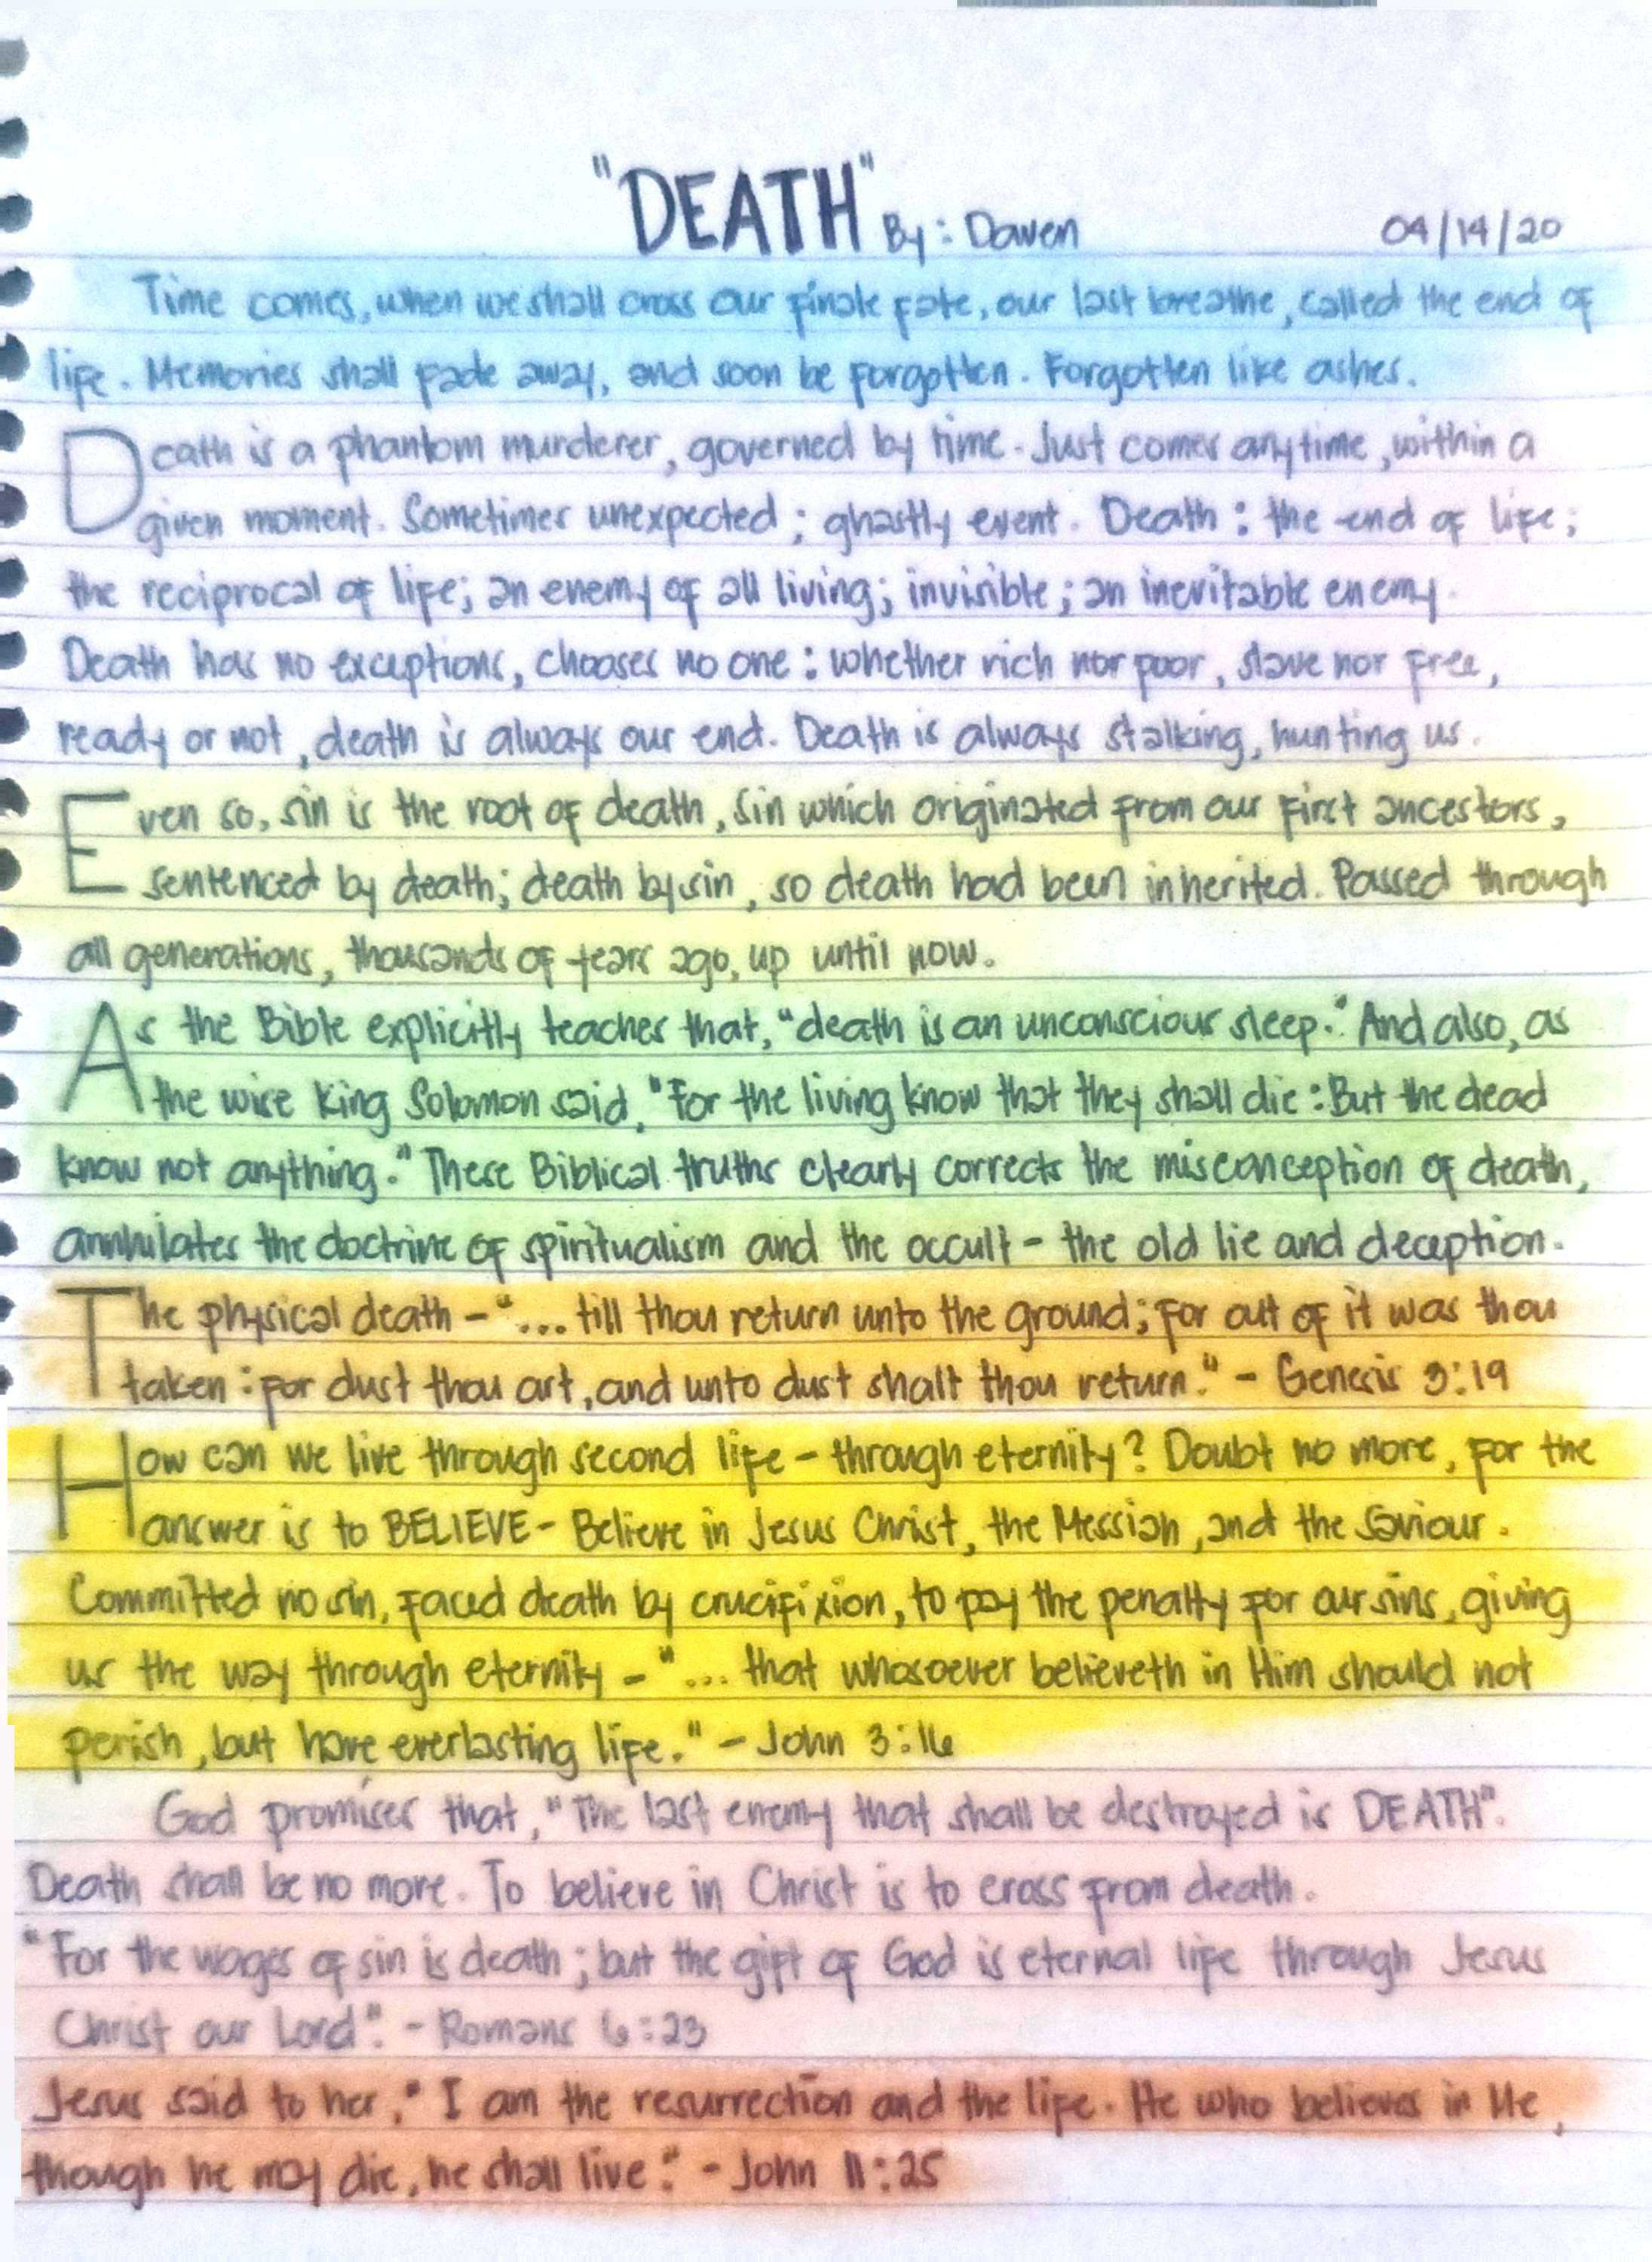 "DEATH" By: Daven 04/14/20
Time comes, when we shall cross our finale fate, our last breathe, called the end of
life. Memories shall fade away, and soon be forgotten. Forgotten like ashes.
Death is a phantom murderer, governed by time. Just comes anytime, within a
given moment. Sometimes unexpected; ghastly event. Death: the end of life;
the reciprocal of life; an enemy of all living; invisible; an inevitable enemy.
Death has no exceptions, chooses no one: whether rich nor poor, slave nor free,
ready or not, death is always our end. Death is always stalking, hunting us.
Even so, sin is the root of death, sin which originated from our first ancestors,
sentenced by death; death by sin, so death had been inherited. Passed through
all generations, thousands of years ago, up until now.
As the Bible explicitly teaches that, "death is an unconscious sleep." And also, as
the wise King Solomon said, "For the living know that they shall die: But the dead
know not anything." These Biblical truths clearly corrects the misconception of death,
annhilates the doctrine of spiritualism and the occult - the old lie and deception.
The physical death - "... till thou return unto the ground; for out of it was thou
taken: for dust thou art, and unto dust shalt thou return." - Genesis 3:19
How can we live through second life - through eternity? Doubt no more, for the
answer is to BELIEVE - Believe in Jesus Christ, the Messiah, and the Saviour.
Committed no sin, faced death by crucifixion, to pay the penalty for our sins, giving
us the way through eternity - "... that whosoever believeth in Him should not
perish, but have everlasting life." - John 3:16
God promises that, "The last enemy that shall be destroyed is DEATH".
Death shall be no more. To believe in Christ is to cross from death.
"For the wages of sin is death; but the gift of God is eternal life through Jesus
Christ our Lord". - Romans 6:23
Jesus said to her, "I am the resurrection and the life. He who believes in Me,
though he may die, he shall live." - John 11:25